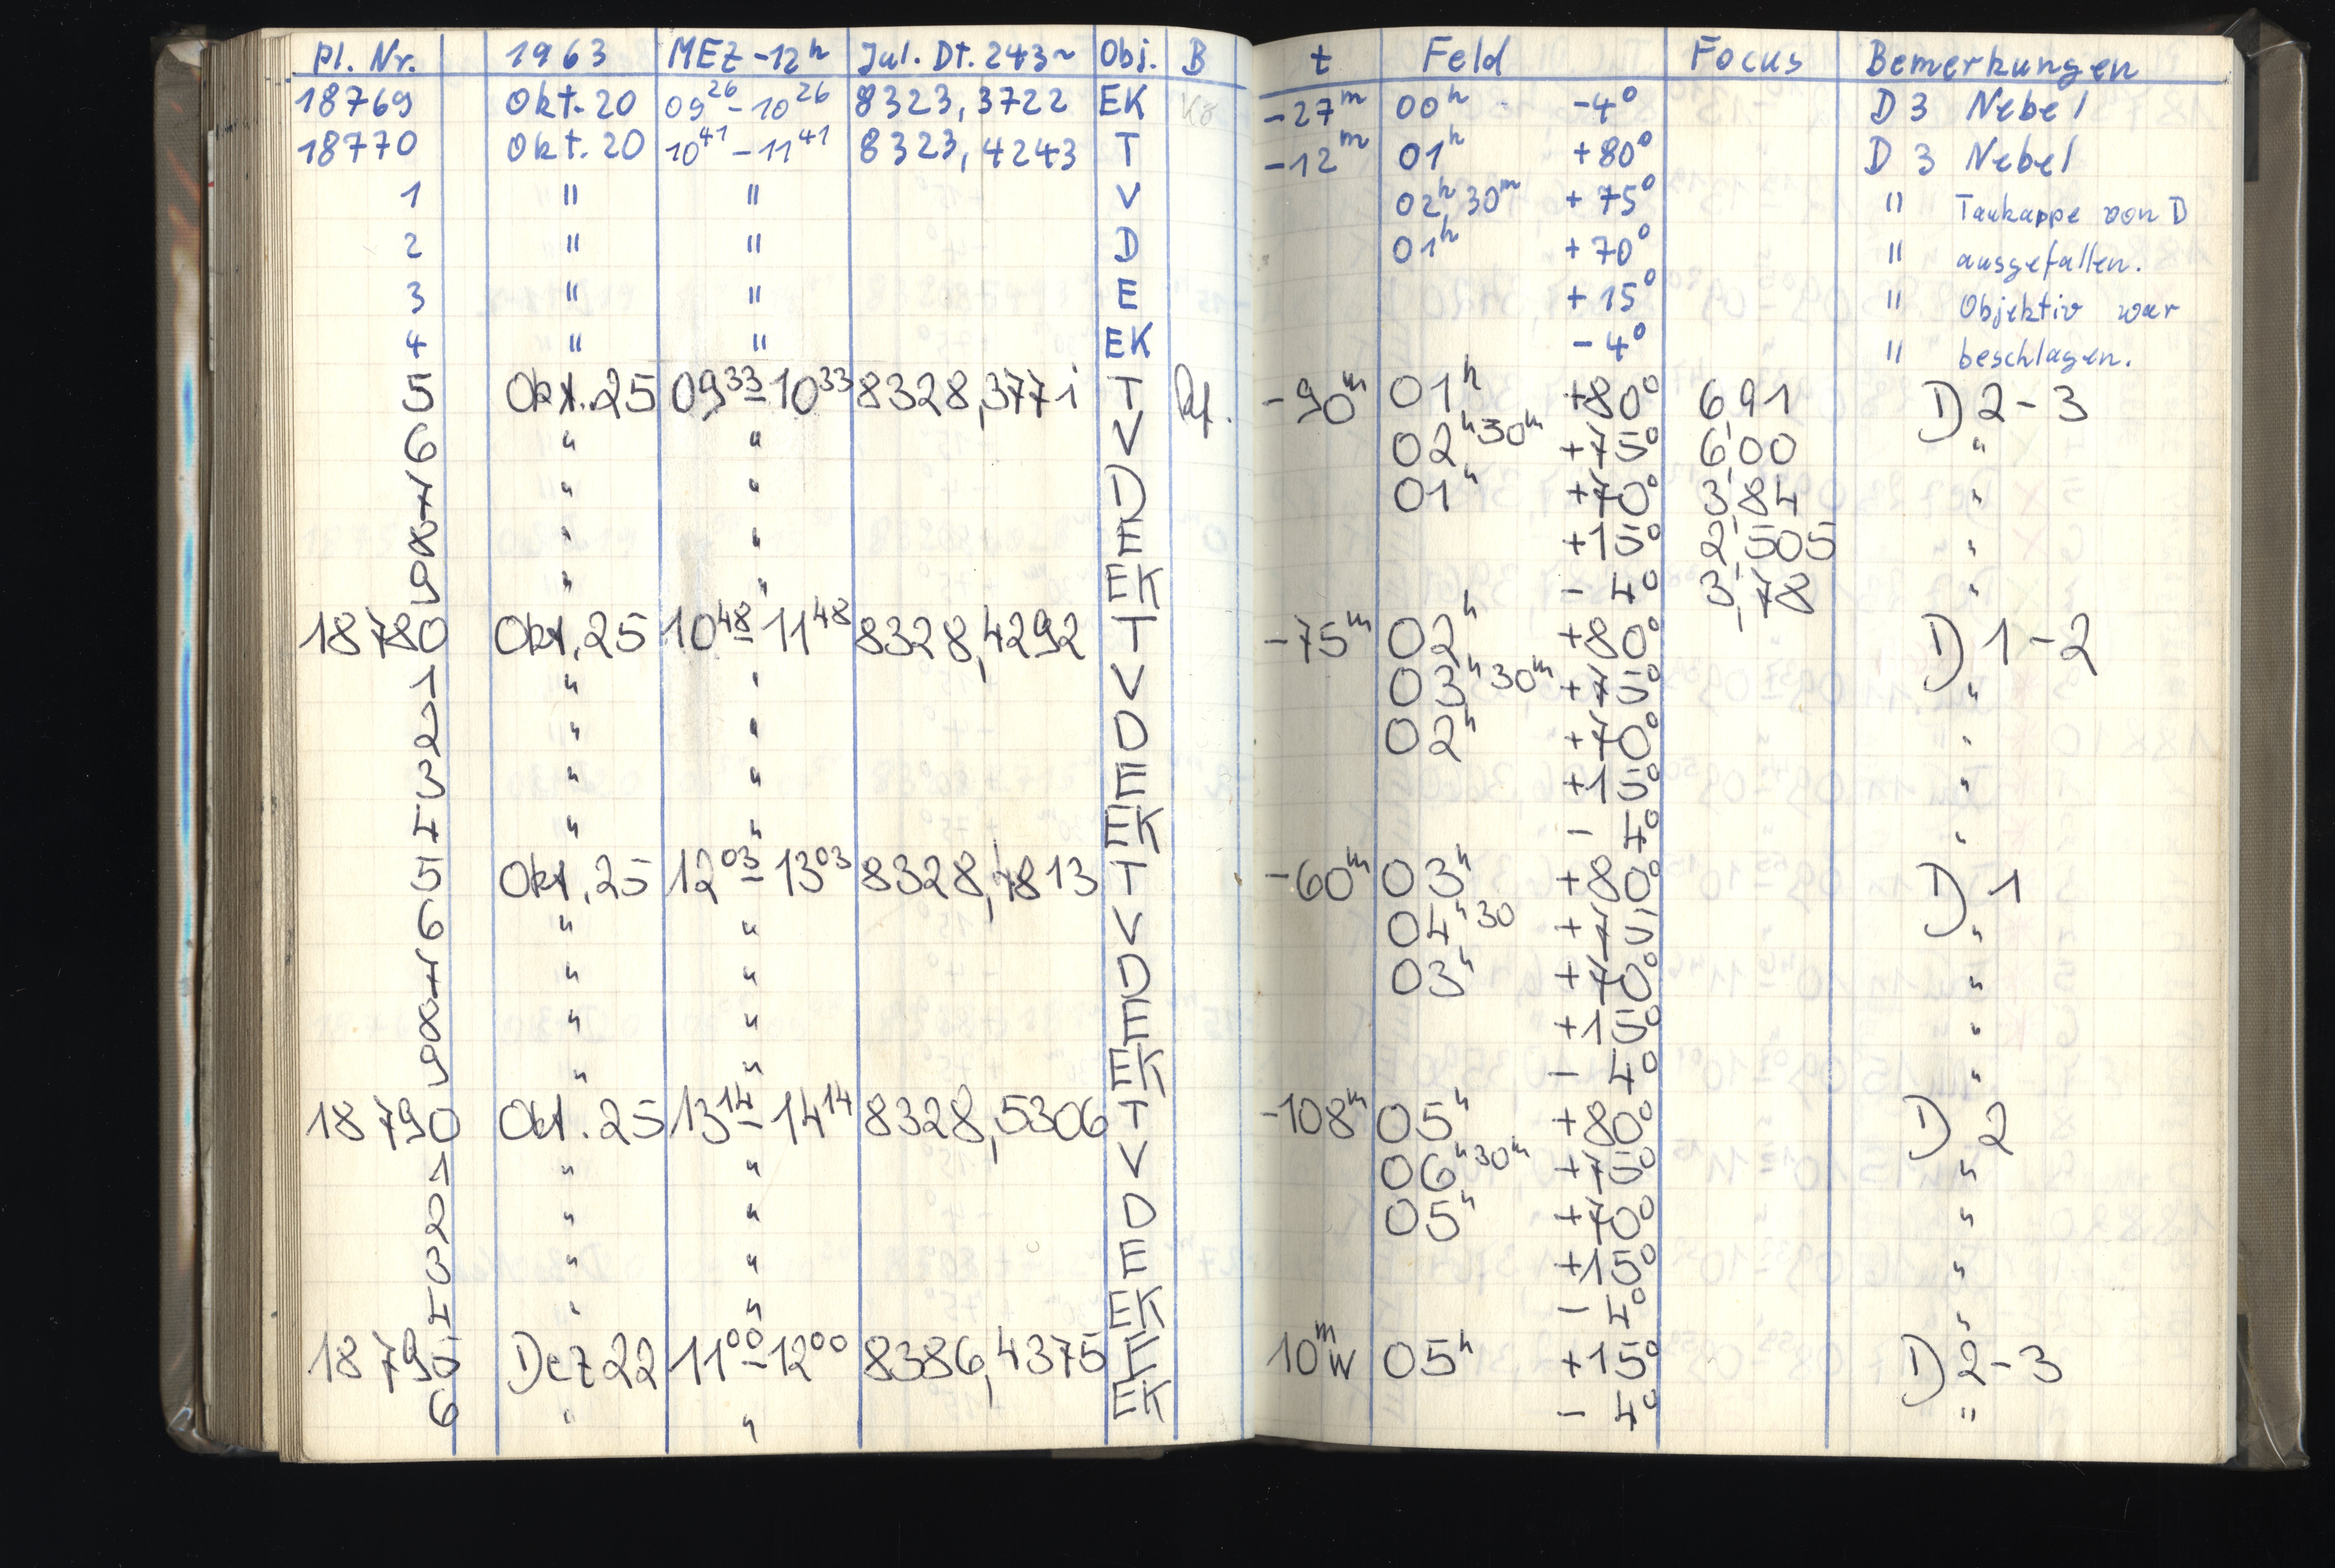 Pl. Nr. 1963 MEZ -12h Jul. Dt. 243~ Obj. B t Feld Focus Bemerkungen
18769 Okt. 20 09 26 - 10 26 8323,3722 EK Kö -27m 00h -4° D 3 Nebel
18770 Okt. 20 10 41 - 11 41 8323,4243 T -12m 01h +80° D 3 Nebel
1 " " V 02h 30m +75° " Taukappe von D
2 " " D 01h +70° " ausgefallen.
3 " " E +15° " Objektiv war
4 " " EK -4° " beschlagen.
5 Okt. 25 09 33 - 10 33 8328,3771 T -90m 01h +80° 6,91 D 2-3
6 " " V 02h 30m +75° 6,00 "
7 " " D 01h +70° 3,84 "
8 " " E +15° 2,505 "
9 " " EK -4° 3,78 "
18780 Okt. 25 10 48 - 11 48 8328,4292 T -75m 02h +80° D 1-2
1 " " V 03h 30m +75° "
2 " " D 02h +70° "
3 " " E +15° "
4 " " EK -4° "
5 Okt. 25 12 03 - 13 03 8328,4813 T -60m 03h +80° D 1
6 " " V 04h 30 +75° "
7 " " D 03h +70° "
8 " " E +15° "
9 " " EK -4° "
18790 Okt. 25 13 14 - 14 14 8328,5306 T -108m 05h +80° D 2
1 " " V 06h 30m +75° "
2 " " D 05h +70° "
3 " " E +15° "
4 " " EK -4° "
18795 Dez 22 11 00 - 12 00 8386,4375 E 10m W 05h +15° D 2-3
6 " " EK -4° "